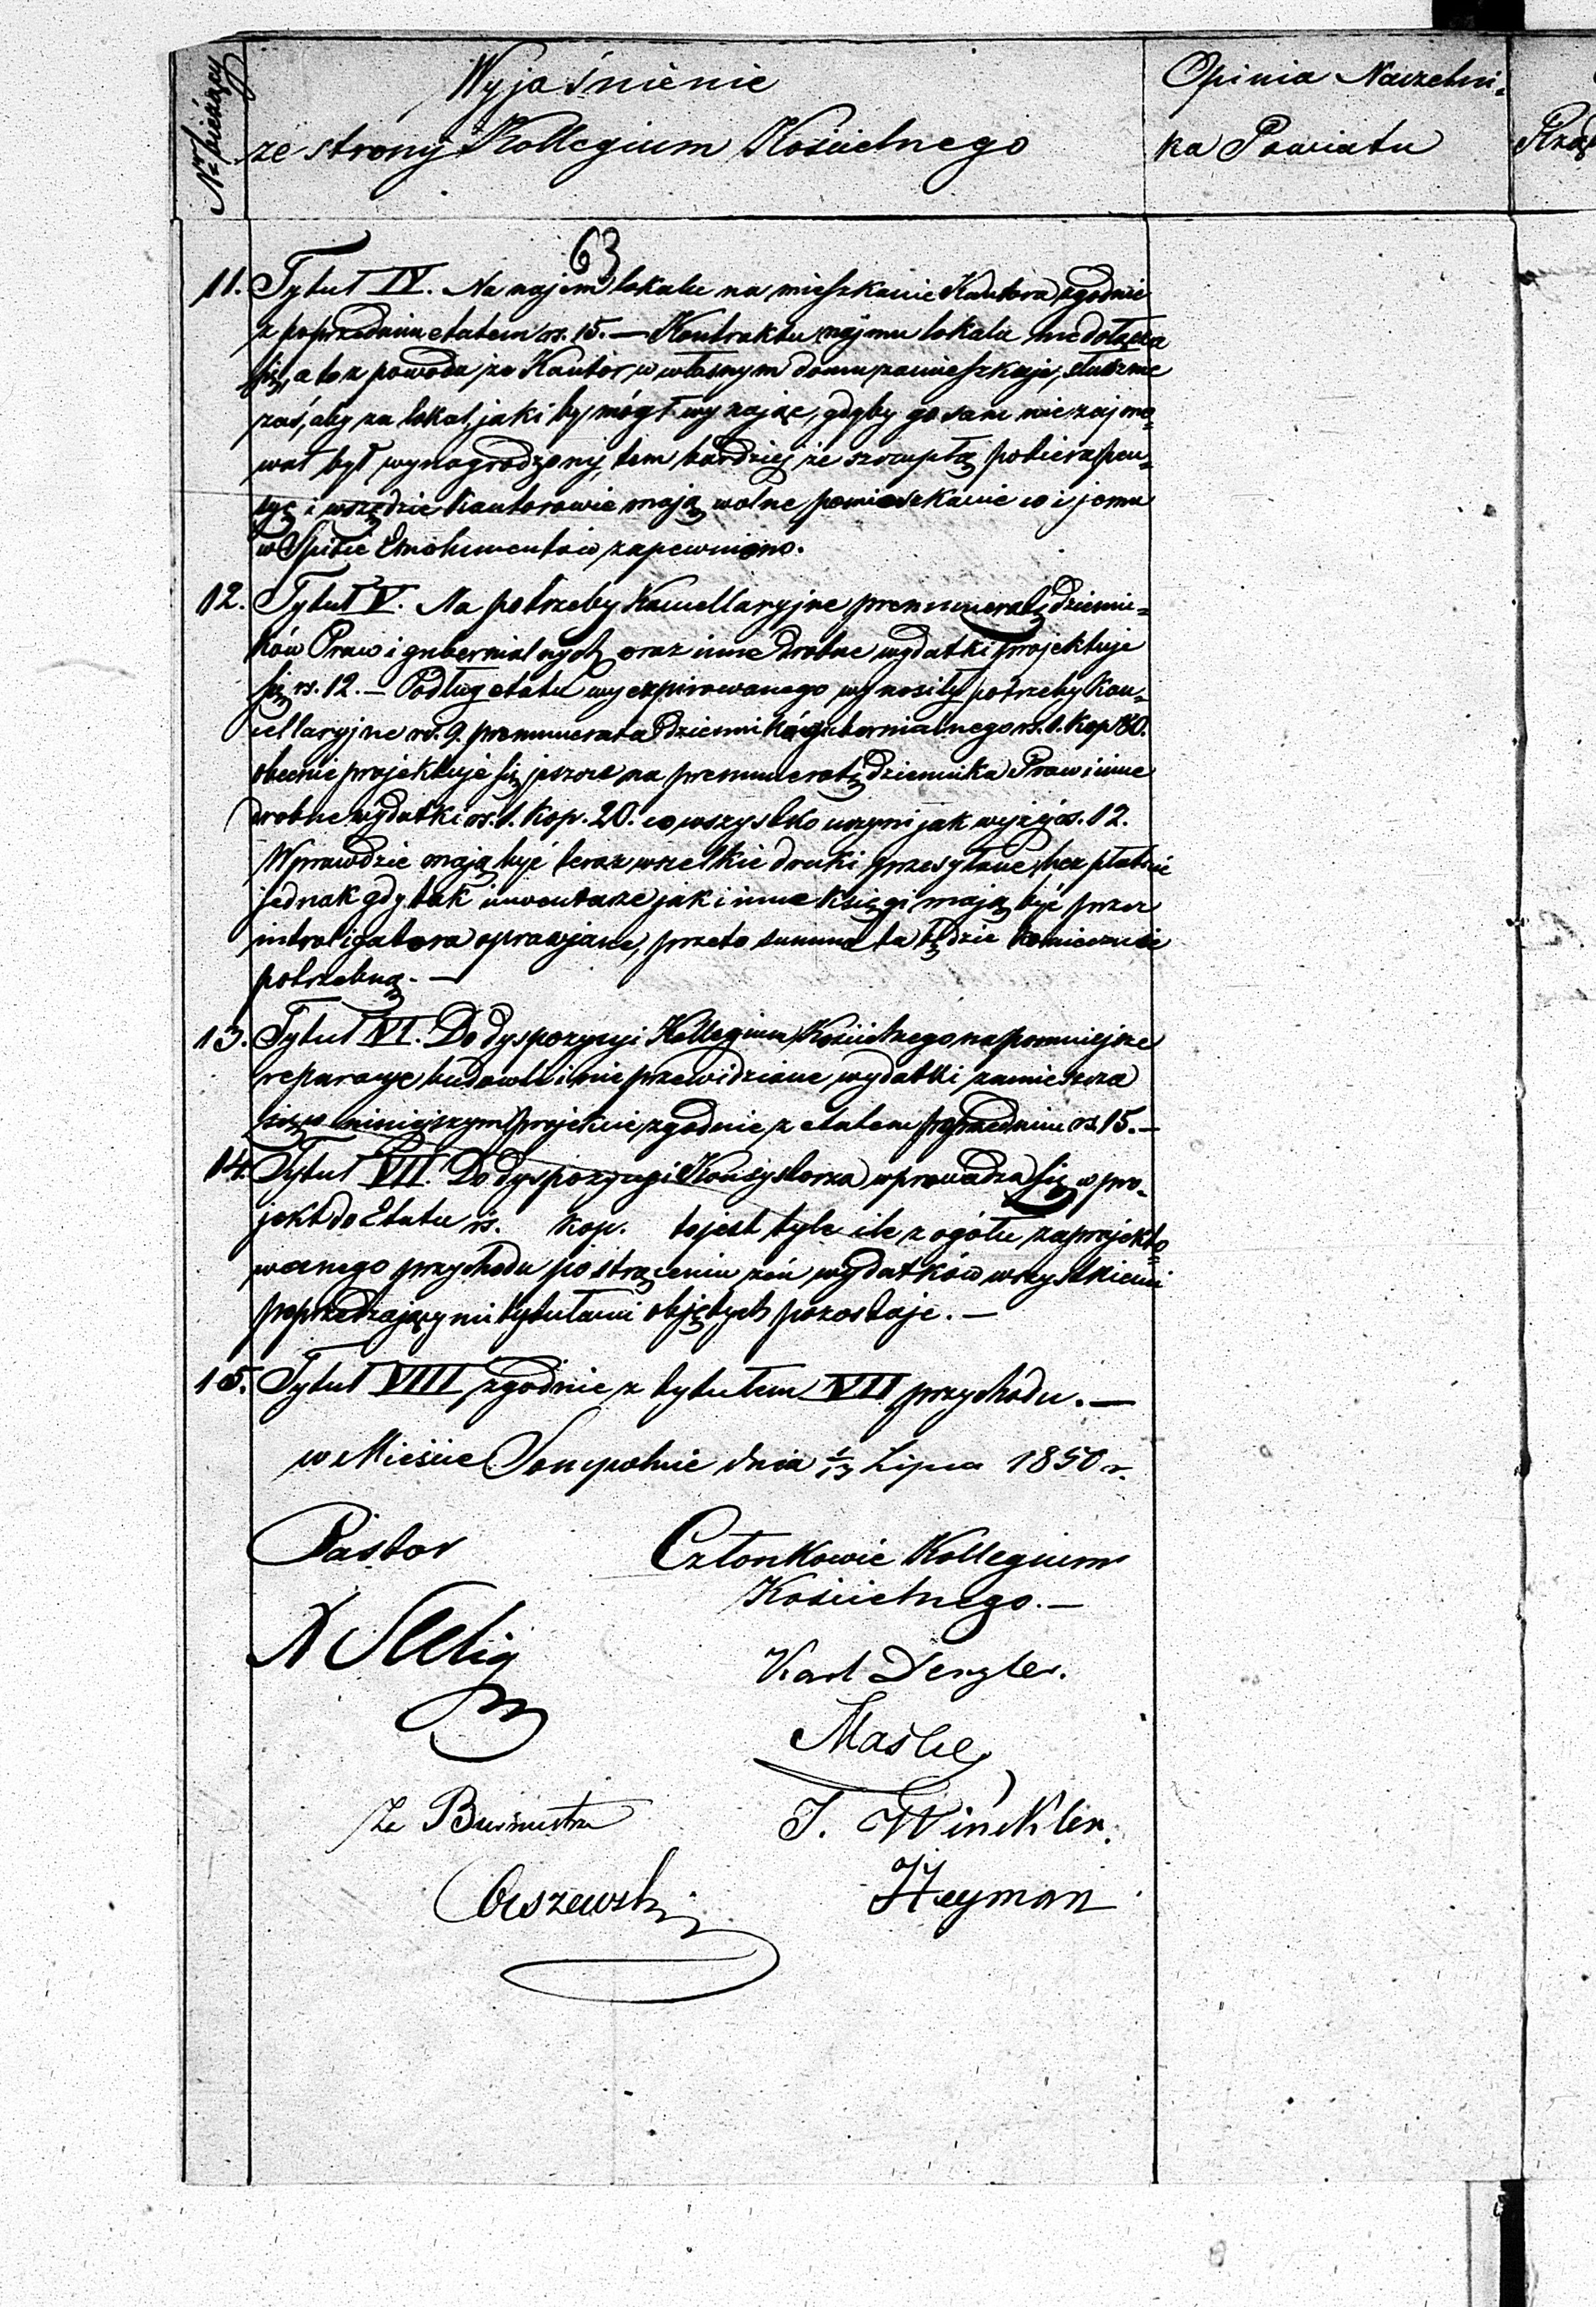 Nr bieżący
Wyjaśnienie
ze strony Kollegium Kościelnego
Opinia Naczelni-
ka Powiatu
63
11. Tytuł IV. Na najem lokalu na mieszkanie Kantora zgodnie
z poprzednim etatem rs. 15. — Kontraktu najmu lokalu niedołącza
się, a to z powodu że Kantor w własnym domu zamieszkuje, słuszne
zaś, aby za lokal, jaki by mógł wynająć, gdyby go sam nie zajmo-
wał był wynagrodzony, tem bardziej że szczupłą pobiera pen-
syę i wszędzie Kantorowie mają wolne pomieszkanie co i jemu
w Spisie Emolumentów zapewniono.
12. Tytuł V. Na potrzeby Kancellaryjne prenumeratę dzienni-
ków Praw i gubernialnych oraz inne drobne wydatki projektuje
się rs. 12. — Podług etatu wyexpirowanego wynosiły potrzeby Kan-
cellaryjne rs. 9. prenumerata Dziennika gubernialnego rs. 1. Kop 80.
obecnie projektuje się jeszcze na prenumeratę dziennika Praw i inne
drobne wydatki rs. 1. Kop. 20. co wszystko uczyni jak wyżej rs. 12.
Wprawdzie mają być teraz wszelkie druki przesyłane bezpłatnie
jednak gdy tak inwentarze jak i inne księgi mają być przez
introligatora oprawiane, przeto summa ta będzie koniecznie
potrzebną. —
13. Tytuł VI. Do dyspozycyi Kollegium Kościelnego na pomniejsze
reparacye budowli i nieprzewidziane wydatki zamieszcza
się w niniejszym projekcie zgodnie z etatem poprzednim rs. 15. —
14. Tytuł VII. Do dyspozycyi Konsystorza wprowadza się w pro-
jekt do Etatu rs. kop. to jest tyle ile z ogółu zaprojekto-
wanego przychodu po strąceniu zeń wydatków wszystkiemi
poprzedzającymi tytułami objętych pozostaje. —
15. Tytuł VIII zgodnie z tytułem VII przychodu. —
w Mieście Sompolnie dnia 1/13 Lipca 1850 r.
Pastor
Członkowie Kollegium
Kościelnego. —
Karl Denzler.
Maske
Za Burmistrza
J. Winckler.
Heyman